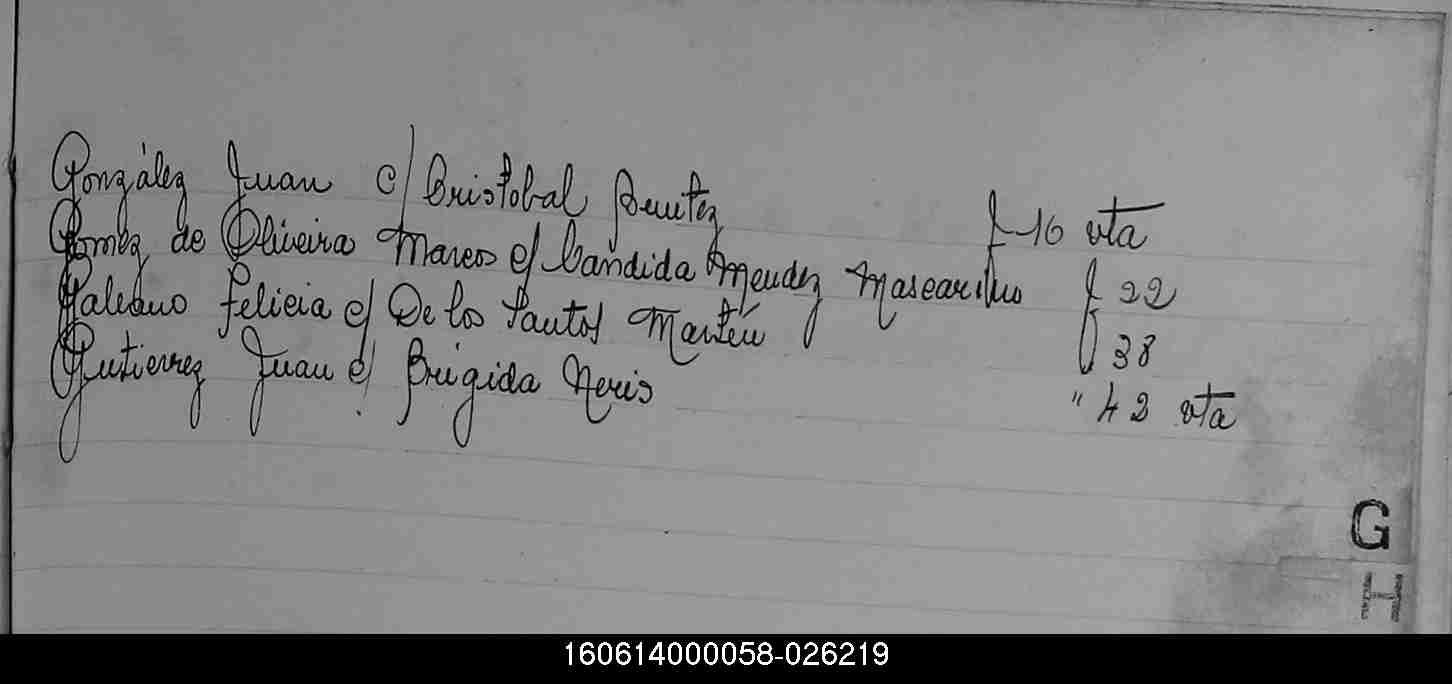 González Juan c/ Cristobal Benitez f 16 vta
Gomez de Oliveira Marcos c/ Candida Mendez Mascareños f 22
Galeano Felicia c/ De los Santos Martín f 38
Gutierrez Juan c/ Brígida Neris " 42 vta
G
H
160614000058-026219